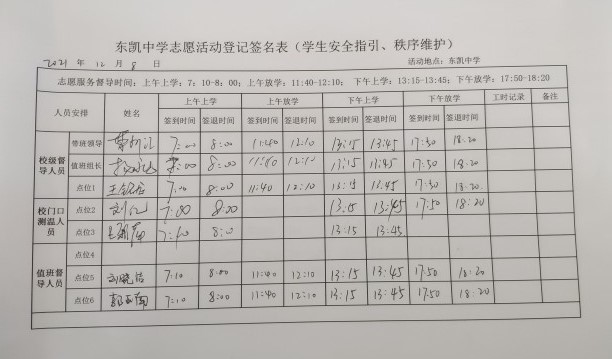 东凯中学志愿活动登记签名表（学生安全指引、秩序维护）
2021 年 12 月 8 日 活动地点：东凯中学
志愿服务督导时间：上午上学：7：10-8：00；上午放学：11:40-12:10； 下午上学：13:15-13:45；下午放学：17:50-18:20
人员安排 姓名 上午上学 上午放学 下午上学 下午放学 工时记录 备注
签到时间 签退时间 签到时间 签退时间 签到时间 签退时间 签到时间 签退时间
校级督导人员 带班领导 7:00 8:00 11:40 12:10 13:15 13:45 17:50 18:20
值班组长 8:00 11:40 12:10 13:15 13:45 17:50 18:20
点位1 7:00 8:00 11:40 12:10 13:15 13:45 17:50 18:20
校门口测温人员 点位2 7:00 8:00 13:15 13:45 17:50 18:20
点位3 8:0 13:15 13:45
值班督导人员 点位4
点位5 7:10 8:00 11:40 12:10 13:15 13:45 17:50 18:20
点位6 7:10 8:00 11:40 12:10 13:15 13:45 17:50 18:20